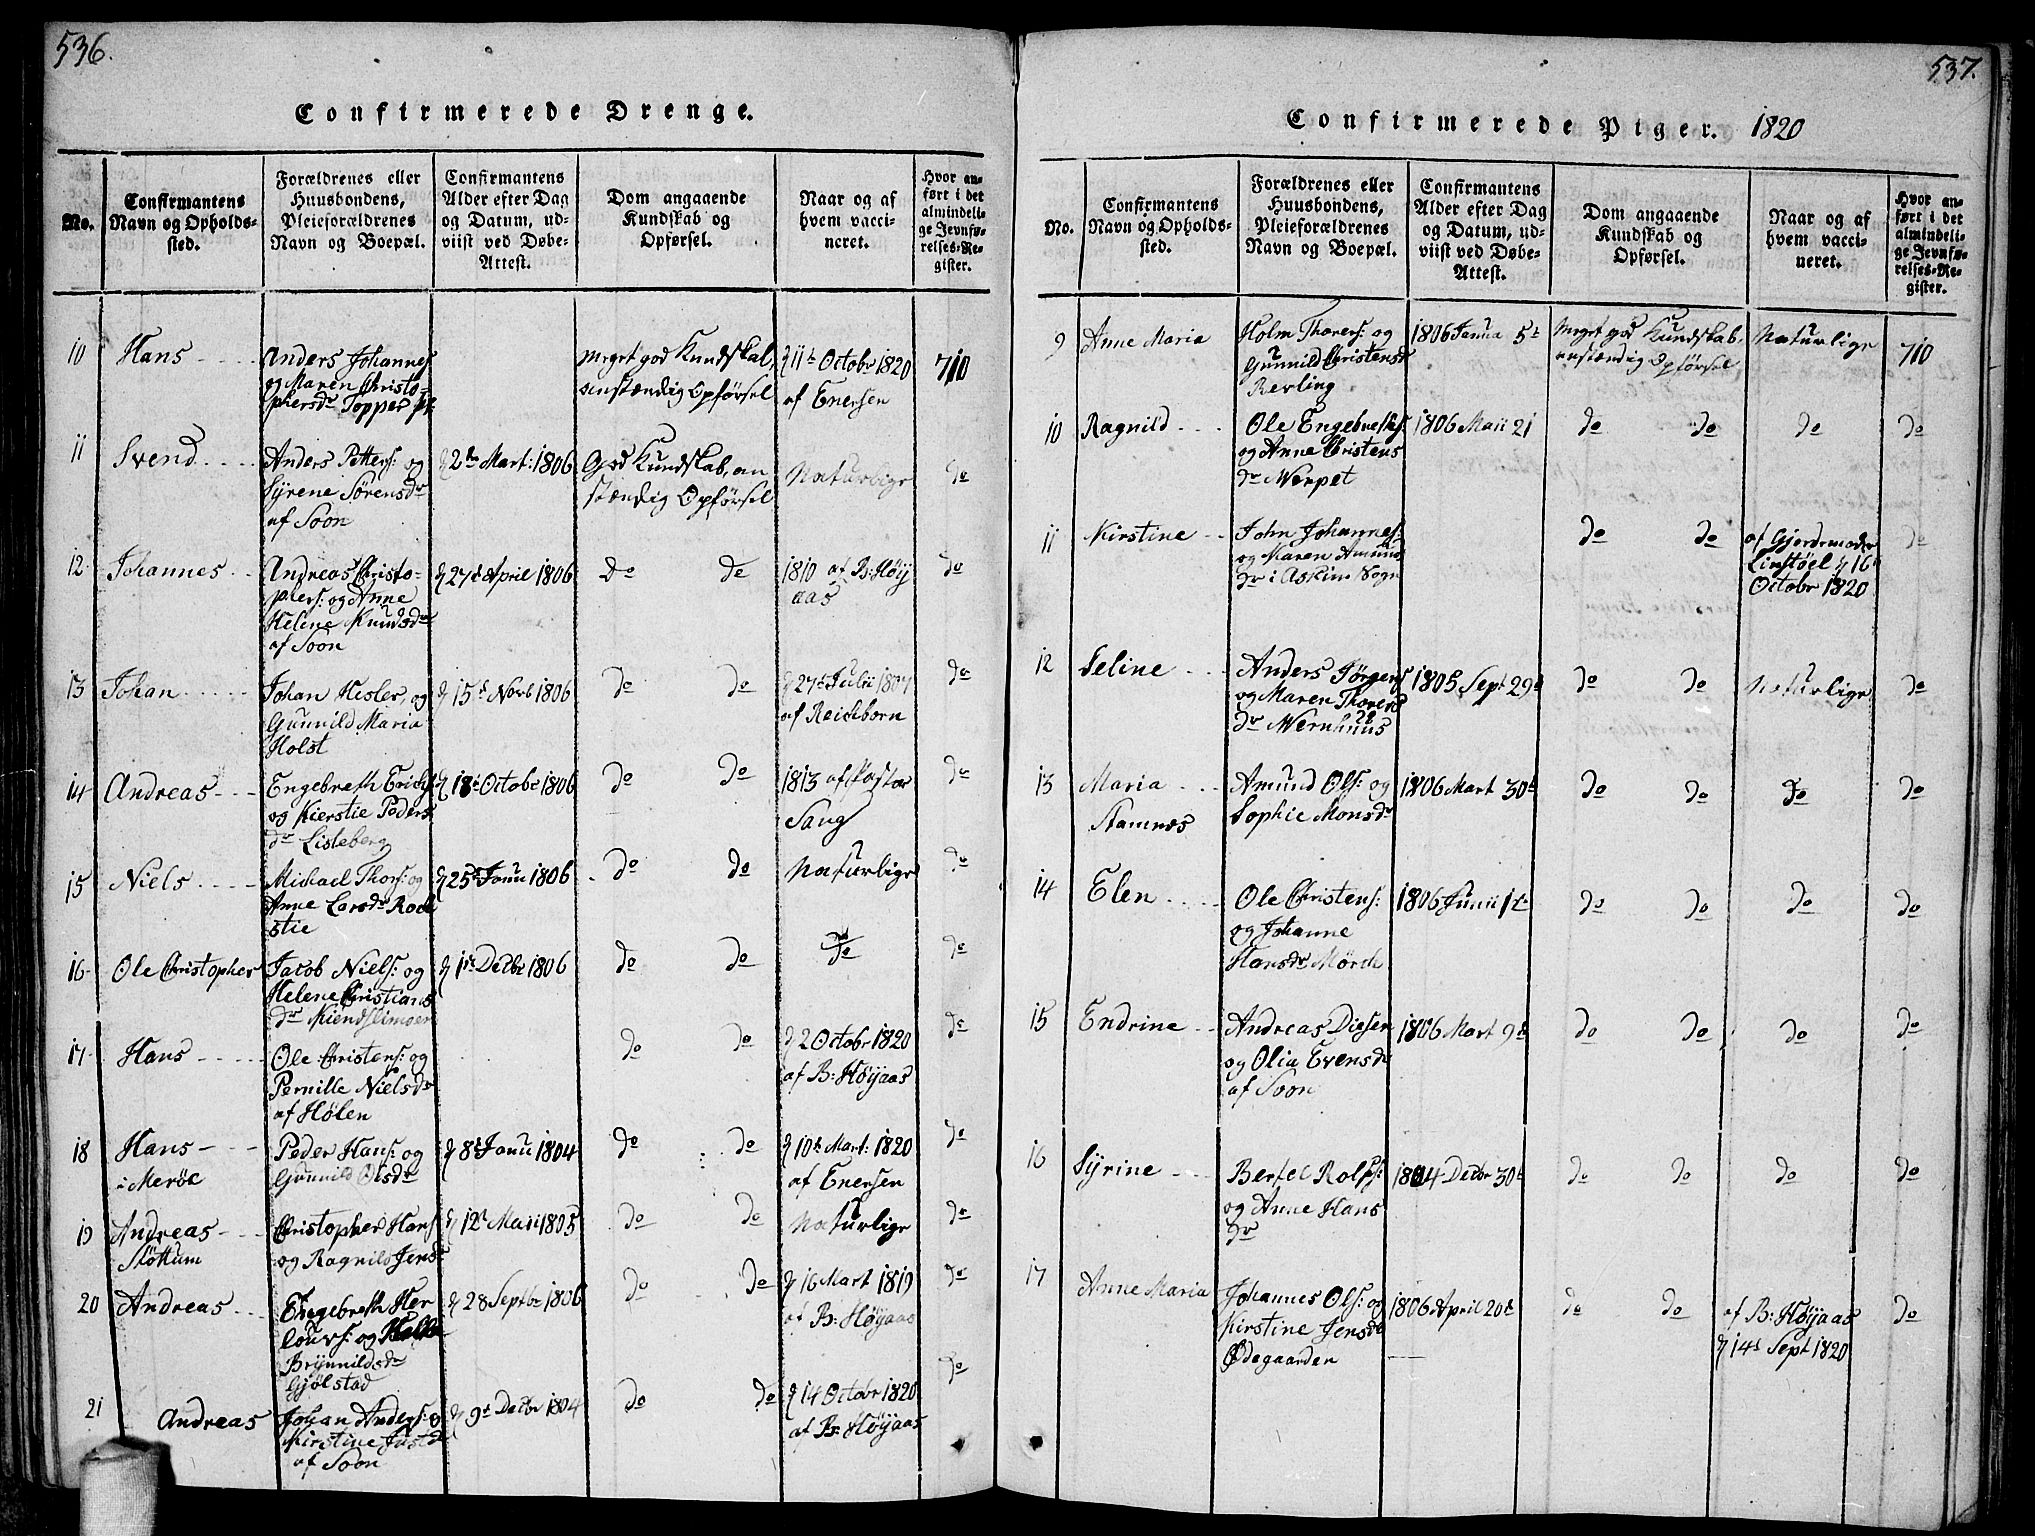 536.
Confirmerede Drenge.
No.
Confirmantens
Navn og Opholds-
sted.
Forældrenes eller
Huusbondens,
Pleieforældrenes
Navn og Boepæl.
Confirmantens
Alder efter Dag
og Datum, ud-
viist ved Døbe-
Attest.
Dom angaaende
Kundskab og
Opførsel.
Naar og af
hvem vacci-
neret.
Hvor an-
ført i det
almindeli-
ge Jevnfø-
relses-Re-
gister.
10 Hans
Anders Johannes
og Maren Christo-
phersdr Topper
meget god Kundskab,
anstændig Opførsel
11t Octobr 1820
af Enersen
710
11 Svend
Anders Petters: og
Syrene Sørensdr
af Soon
2den Mart: 1806
God Kundskab, an
stændig Opførsel
Naturlige
do
12 Johannes
Andreas Christo-
phers: og Anne
Helene Knudsdr
af Soon
27d April 1806
do do
1810 af B: Høij
aas
do
13 Johan
Johan Hesler, og
Gunnild Maria
Holst
15d Novb 1806
do do
27d Julii 1807
af Reichborn
do
14 Andreas
Engebreth Erichs
og Kierstie Peders
dr Lisleberg
18d Octobr 1806
do do
1813 af Pastor
Sang
do
15 Niels
Michael Thors: og
Anne Larsdr Rode
stie
25d Janu 1806
do do
Naturlige
do
16 Ole Christopher
Jacob Niels: og
Helene Christians
dr Kiendslimoen
1st Decbr 1806
do do
do
do
17 Hans
Ole Christens: og
Pernille Nielsdr
af Hølen
do do
2 Octobr 1820
af B: Høijaas
do
18 Hans
i Merøe
Peder Hans: og
Gunnild Olsdr
8d Janu 1804
do do
10t Mart: 1820
af Enersen
do
19 Andreas
Støttum
Christopher Hans
og Ragnild Jens
12t Maii 1805
do do
Naturlige
do
20 Andreas
Engebreth Her
louvs: og
Brynnildsdr
Gjølstad
28 Septbr 1806
do do
16 Mart 1819
af B: Høijaas
do
21 Andreas
Johan Anders: og
Kirstine Justdr
af Soon
9t Decbr 1804
do do
14 Octobr 1820
af B: Høijaas
do
537.
Confirmerede Piger. 1820
No.
Confirmantens
Navn og Opholds-
sted.
Forældrenes eller
Huusbondens,
Pleieforældrenes
Navn og Boepæl.
Confirmantens
Alder efter Dag
og Datum, ud-
viist ved Døbe-
Attest.
Dom angaaende
Kundskab og
Opførsel.
Naar og af
hvem vacci-
neret.
Hvor an-
ført i det
almindeli-
ge Jevnfø-
relses-Re-
gister.
9 Anne Maria
Holm Thorers: og
Gunnild Christensd
Revling
1806 Janua 5t
Meget god Kundskab,
anstændig Opførsel
Naturlige
710
10 Ragnild
Ole Engebreths:
og Anne Christens
dr Werpet
1806 Maii 21
do do
do
do
11 Kirstine
John Johannes:
og Maren Amund
dr i Askim Sogn
do do
af Gjordemoder
Linstøel 16
Octobr 1820
do
12 Seline
Anders Jørgens
og Maren Thorers
dr Wernhuus
1805 Sept 29d
do do
Naturlige
do
13 Maria
Stamnes
Amund Ols: og
Sophie Monsdr
1806 Mart 30t
do do
do
do
14 Elen
Ole Christens:
og Johanne
Hansdr Mörch
1806 Junii 1te
do do
do
do
15 Endrine
Andreas Diesen
og Olia Evensdr
af Soon
1806 Mart 9d
do do
do
do
16 Syrine
Bertel Rolfs:
og Anne Hans
dr
1804 Decbr 30t
do do
do
do
17 Anne Maria
Johannes Ols: og
Kirstine Jensdr
Ødegaarden
1806 April 20t
do do
af B: Høijaas
14d Sept 1820
do